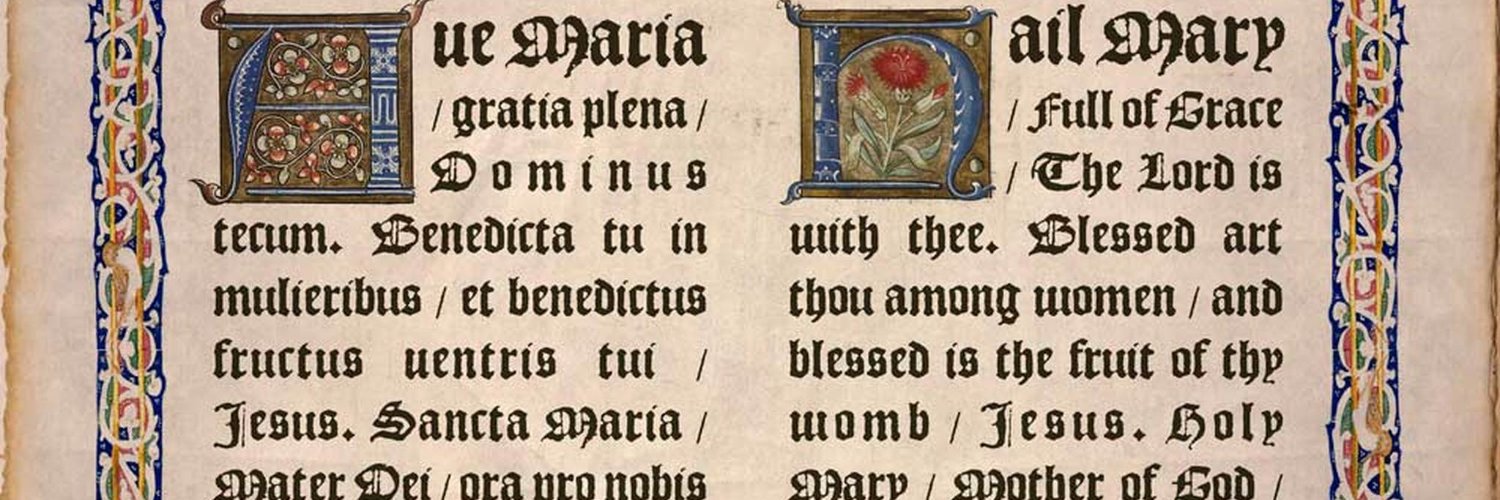 Aue Maria
/ gratia plena /
Dominus
tecum. Benedicta tu in
mulieribus / et benedictus
fructus uentris tui /
Jesus. Sancta Maria /
Mater Dei / ora pro nobis
Hail Mary
/ Full of Grace
/ The Lord is
with thee. Blessed art
thou among women / and
blessed is the fruit of thy
womb / Jesus. Holy
Mary / Mother of God /